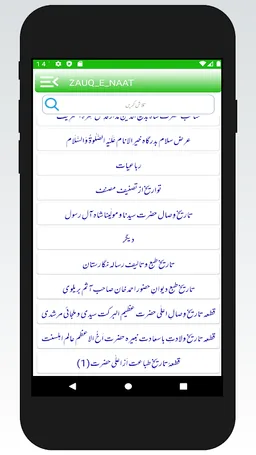 1 4
ZAUQ_E_NAAT
تلاش کریں
عرض سلام بدرگاہ خیر الانام عَلَیْہِ الصَّلٰوۃُ وَالسَّلَام
رباعیات
تواریخ از تصنیف مصنف
تاریخ وصال حضرت سیدنا و مولیٰنا شاہ آلِ رسول
دیگر
تاریخ طبع و تالیف رسالہ نگارستان
تاریخ طبع دیوان حضور احمد خان صاحب آثم بریلوی
قطعہ تاریخ وصال اعلیٰ حضرت عظیم البرکت سیدی و ملجائی مرشدی
قطعہ تاریخ ولادت باسعادت نبیرہ حضرت اخ الاعظم عالم اہلسنت
قطعۂ تاریخ طباعت از اعلٰی حضرت (1)